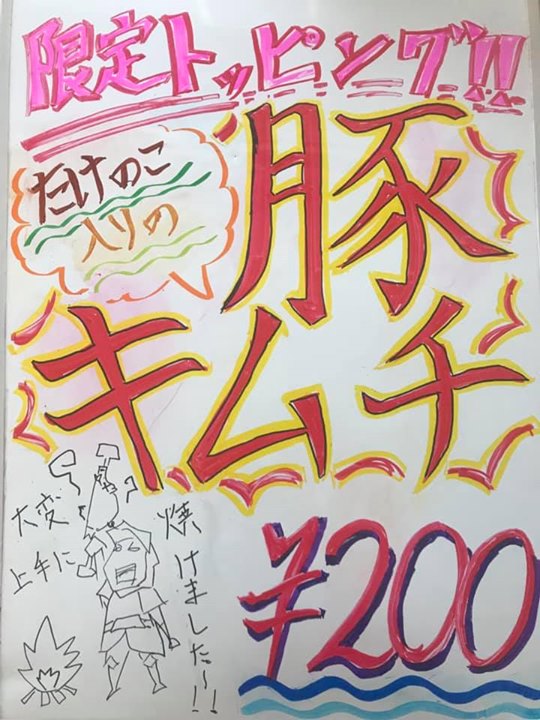 限定トッピング!!
たけのこ
入りの
豚
キムチ
大変
上手に
焼けました〜!!
¥200